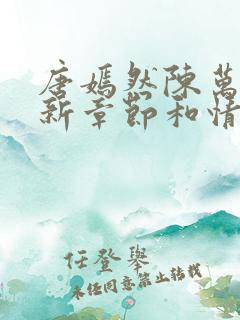 唐嫣然陈萬
新章節和情
任登舉
未经同意禁止转载